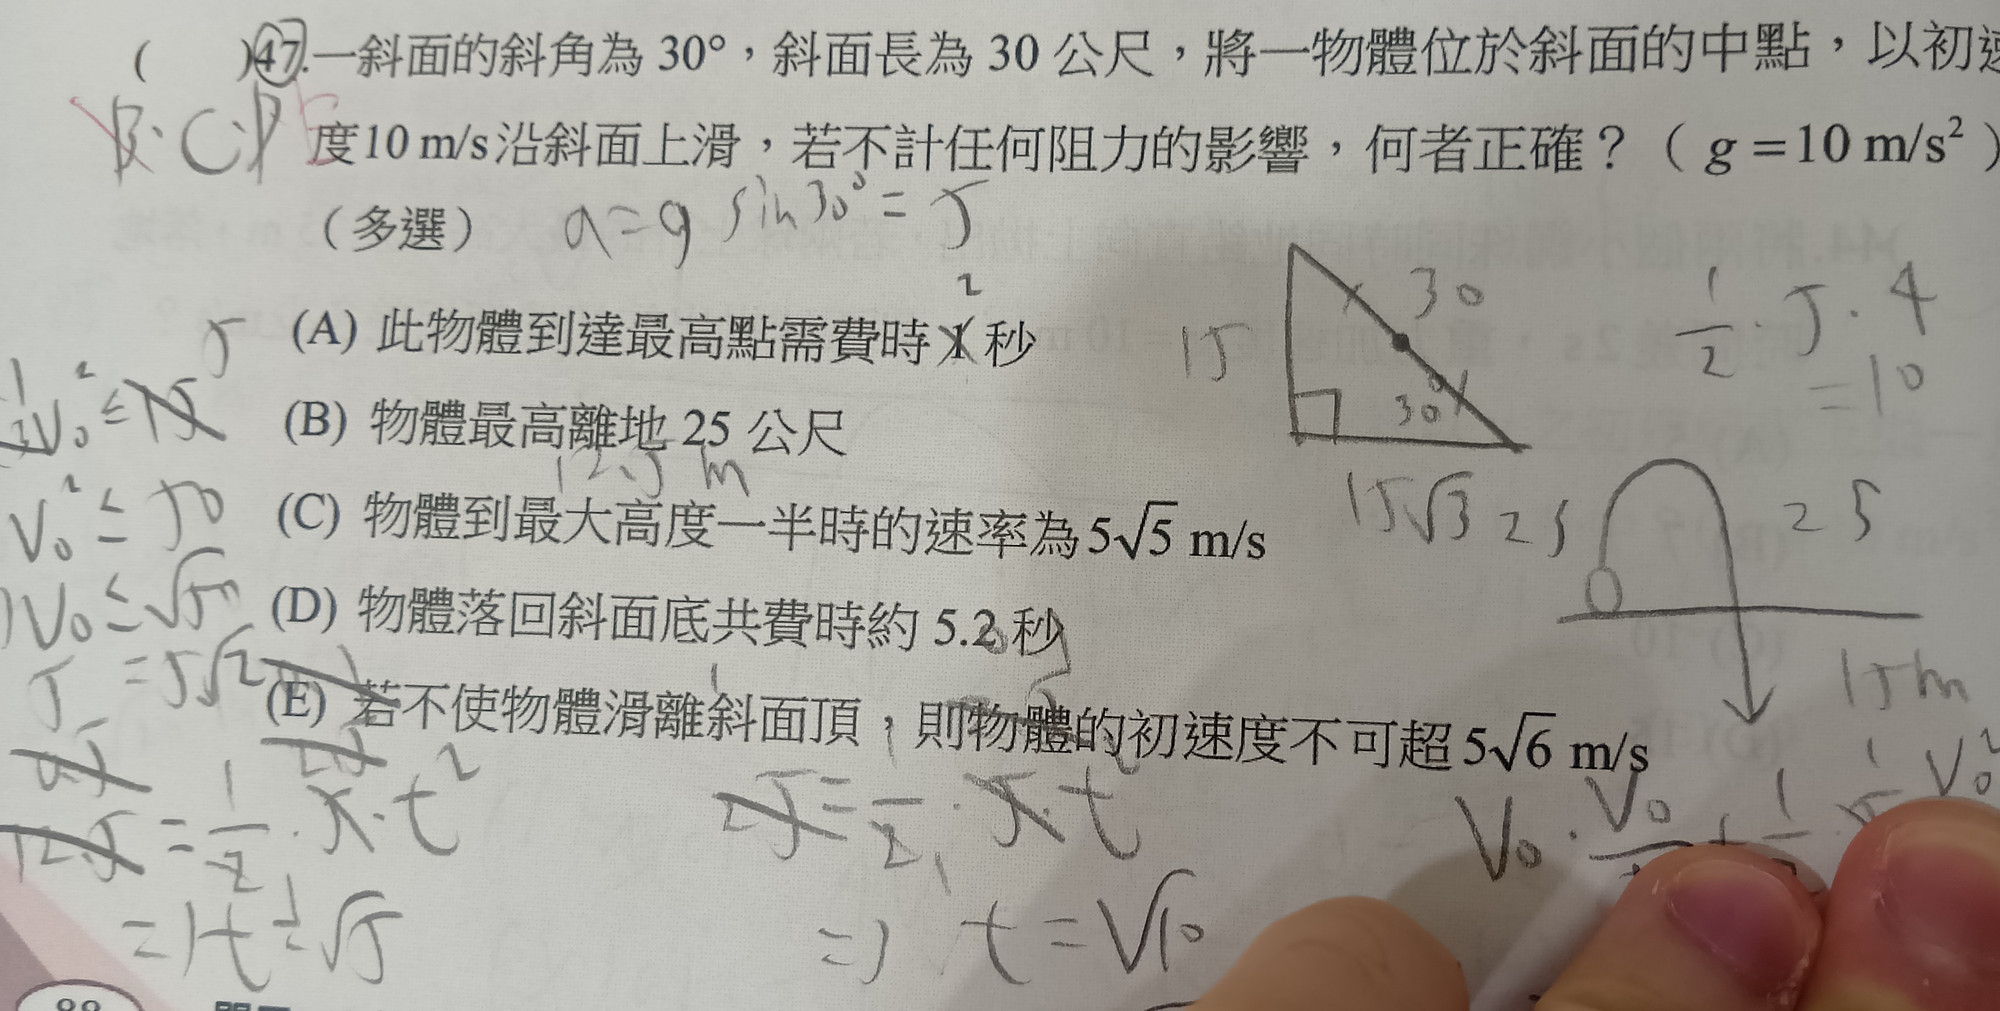 ( )47.一斜面的斜角為 30°，斜面長為 30 公尺，將一物體位於斜面的中點，以初速
B.C.D
度10 m/s沿斜面上滑，若不計任何阻力的影響，何者正確？（ g = 10 m/s²）
（多選）
a = g sin30° = 5
2
(A) 此物體到達最高點需費時 1 秒
(B) 物體最高離地 25 公尺
12.5 m
(C) 物體到最大高度一半時的速率為 5√5 m/s
(D) 物體落回斜面底共費時約 5.2 秒
(E) 若不使物體滑離斜面頂，則物體的初速度不可超 5√6 m/s
30
15
30°
15√3
1/2 · 5 · 4
= 10
25
25
15m
V₀² ≤ 50
V₀ ≤ √50
= 5√2
= 1/2 · 5 · t²
=) t = √5
25 = 1/2 · 5 · t²
=) t = √10
88